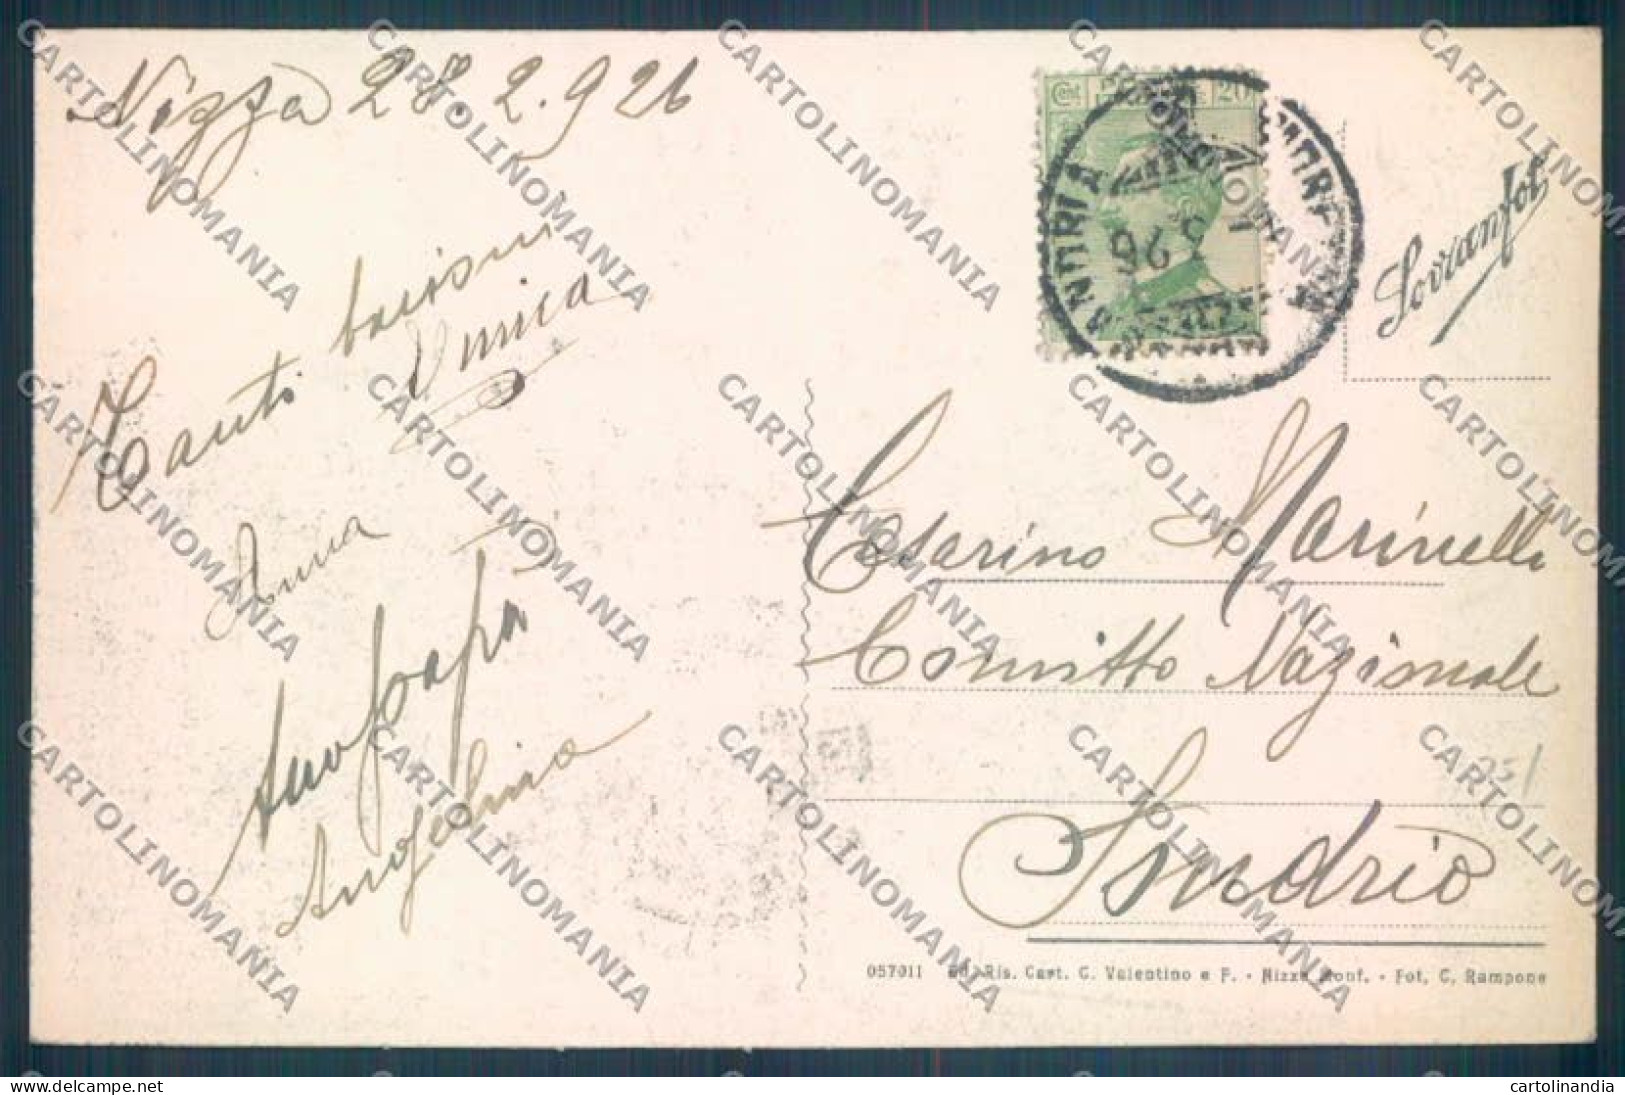 Nizza 28.2.926
Tanti bacioni
Unica
Anna
papà
Angelina
Cent 20
26
Sovranfot
Cesarino Marinelli
Convitto Nazionale
Sondrio
25/
057011 Ed. Ris. Cart. C. Valentino e F. - Nizza Monf. - Fot. C. Rampone
CARTOLINOMANIA
cartolinandia
www.delcampe.net